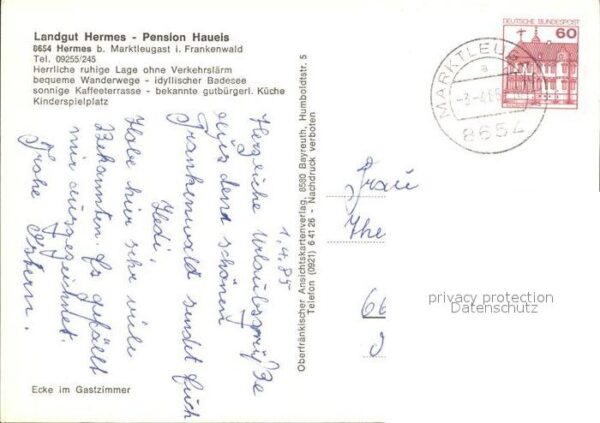 Landgut Hermes - Pension Haueis
8654 Hermes b. Marktleugast i. Frankenwald
Tel. 09255/245
Herrliche ruhige Lage ohne Verkehrslärm
bequeme Wanderwege - idyllischer Badesee
sonnige Kaffeeterrasse - bekannte gutbürgerl. Küche
Kinderspielplatz
1.4.85
Herzliche Urlaubsgrüße
aus dem schönen
Frankenwald sendet Euch
Hedi.
Habe hier sehr viele
Bekannten. Es gefällt
mir ausgezeichnet.
Frohe Ostern!
Ecke im Gastzimmer
Oberfränkischer Ansichtskartenverlag, 8580 Bayreuth, Humboldtstr. 5
Telefon (0921) 6 41 26 - Nachdruck verboten
DEUTSCHE BUNDESPOST
60
MARKTLEUG
a
8652
Frau
The
66
privacy protection
Datenschutz